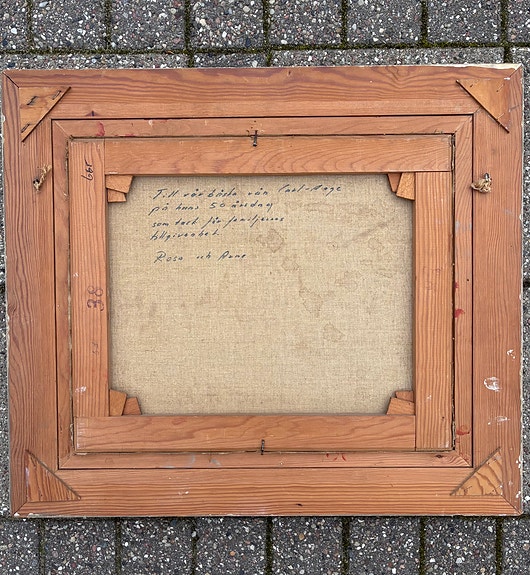 Till vår bästa vän Carl-Aage
på hans 50 årsdag
som tack för familjens
tillgivenhet.
Rosa och Arne
38